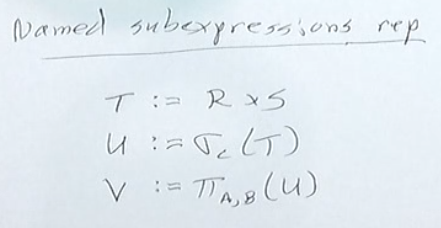 Named subexpressions rep
T := R x S
U := σ_C(T)
V := π_A,B(U)